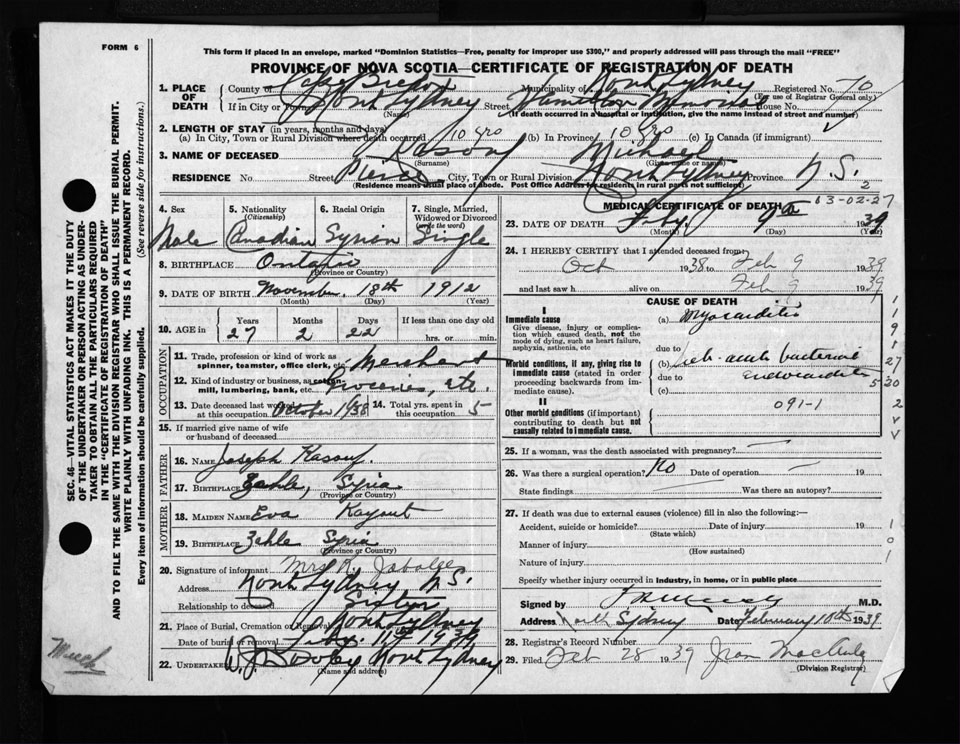 FORM 6
This form if placed in an envelope, marked "Dominion Statistics—Free, penalty for improper use $300," and properly addressed will pass through the mail "FREE"
PROVINCE OF NOVA SCOTIA—CERTIFICATE OF REGISTRATION OF DEATH
1. PLACE OF DEATH
County of Cape Breton Municipality of North Sydney Registered No. 70
(For use of Registrar General only)
If in City or Town North Sydney Street Hamilton Memorial House No.
(Name) (If death occurred in a hospital or institution, give the name instead of street and number)
2. LENGTH OF STAY (in years, months and days)
(a) In City, Town or Rural Division where death occurred 10 yrs (b) In Province 10 yrs (c) In Canada (if immigrant)
3. NAME OF DECEASED Kasouf Michael
(Surname) (Given name or names)
RESIDENCE No. Street Pierce City, Town or Rural Division North Sydney Province N.S.
(Residence means usual place of abode. Post Office Address for residents in rural parts not sufficient) 2
63-02-27
4. Sex 5. Nationality (Citizenship) 6. Racial Origin 7. Single, Married, Widowed or Divorced (write the word)
Male Canadian Syrian Single
8. BIRTHPLACE Ontario
(Province or Country)
9. DATE OF BIRTH November 18th 1912
(Month) (Day) (Year)
10. AGE in Years Months Days If less than one day old
27 2 22 hrs. or min.
OCCUPATION
11. Trade, profession or kind of work as spinner, teamster, office clerk, etc. Merchant
12. Kind of industry or business, as cotton mill, lumbering, bank, etc. Groceries, etc.
13. Date deceased last worked at this occupation October 1938 14. Total yrs. spent in 5
15. If married give name of wife or husband of deceased
FATHER
16. NAME Joseph Kasouf.
17. BIRTHPLACE Zahle, Syria
(Province or Country)
MOTHER
18. MAIDEN NAME Eva Kayout
19. BIRTHPLACE Zahle Syria
(Province or Country)
20. Signature of informant Mrs K. Jabalee
Address North Sydney N.S.
Relationship to deceased Sister
21. Place of Burial, Cremation or Removal North Sydney
Date of burial or removal Feby. 11th 1939
22. UNDERTAKER North Sydney
(Name and address)
MEDICAL CERTIFICATE OF DEATH
23. DATE OF DEATH Feby. 9th 1939
(Month) (Day) (Year)
24. I HEREBY CERTIFY that I attended deceased from
Oct 1938 to Feb 9 1939
and last saw h alive on Feb 9 1939
CAUSE OF DEATH
I
Immediate cause (a) Myocarditis
Give disease, injury or complication which caused death, not the mode of dying, such as heart failure, asphyxia, asthenia, etc
due to
Morbid conditions, if any, giving rise to immediate cause (stated in order proceeding backwards from immediate cause).
(b) sub-acute bacterial
due to endocarditis
(c)
II
Other morbid conditions (if important) contributing to death but not causally related to immediate cause.
091-1
25. If a woman, was the death associated with pregnancy?
26. Was there a surgical operation? No Date of operation 19
State findings Was there an autopsy?
27. If death was due to external causes (violence) fill in also the following:—
Accident, suicide or homicide? Date of injury 19
(State which)
Manner of injury
(How sustained)
Nature of injury
Specify whether injury occurred in industry, in home, or in public place
Signed by M.D.
Address North Sydney Date February 10th 1939
28. Registrar's Record Number
29. Filed Feb 28 1939 Jean
(Division Registrar)
SEC. 46—VITAL STATISTICS ACT MAKES IT THE DUTY OF THE UNDERTAKER OR PERSON ACTING AS UNDERTAKER TO OBTAIN ALL THE PARTICULARS REQUIRED IN THE "CERTIFICATE OF REGISTRATION OF DEATH" AND TO FILE THE SAME WITH THE DIVISION REGISTRAR WHO SHALL ISSUE THE BURIAL PERMIT.
WRITE PLAINLY WITH UNFADING INK. THIS IS A PERMANENT RECORD.
Every item of Information should be carefully supplied. (See reverse side for instructions.)